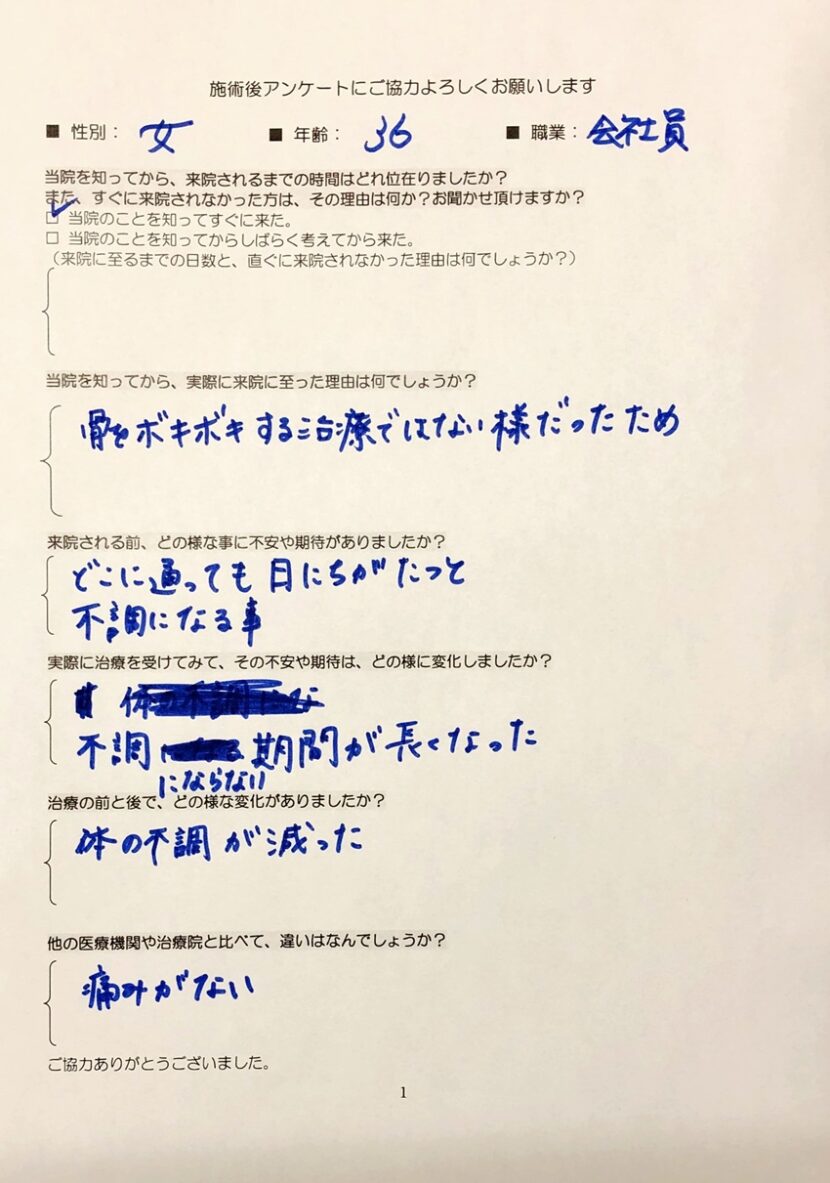 施術後アンケートにご協力よろしくお願いします
■ 性別： 女 ■ 年齢： 36 ■ 職業： 会社員
当院を知ってから、来院されるまでの時間はどれ位在りましたか？
また、すぐに来院されなかった方は、その理由は何か？お聞かせ頂けますか？
☑ 当院のことを知ってすぐに来た。
□ 当院のことを知ってからしばらく考えてから来た。
（来院に至るまでの日数と、直ぐに来院されなかった理由は何でしょうか？）
当院を知ってから、実際に来院に至った理由は何でしょうか？
骨をボキボキする治療ではない様だったため
来院される前、どの様な事に不安や期待がありましたか？
どこに通っても日にちがたつと
不調になる事
実際に治療を受けてみて、その不安や期待は、どの様に変化しましたか？
不調 期間が長くなった
にならない
治療の前と後で、どの様な変化がありましたか？
体の不調が減った
他の医療機関や治療院と比べて、違いはなんでしょうか？
痛みがない
ご協力ありがとうございました。
1